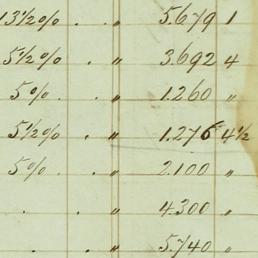 13½% . . „ 5.679 1
5½% . . „ 3.692 4
5%. . . „ 1.260 „
5½% . „ 1.276 4½
5%. . „ 2.100 „
. „ 4.300 „
. „ 5.740 „